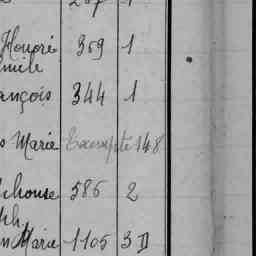 Honoré 359 1
Emile
ançois 344 1
s Marie Exempte 148
lphonse 586 2
ph
n Marie 1105 3 D